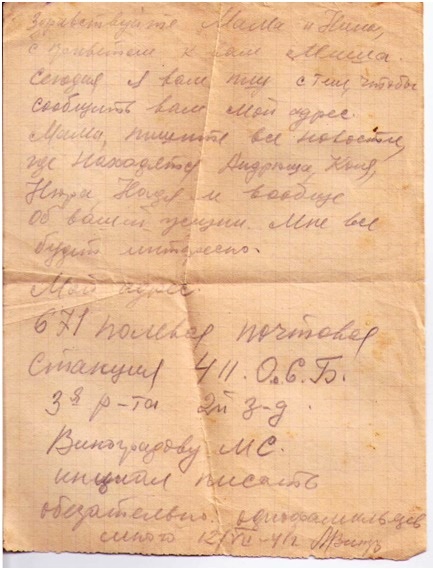 Здравствуйте Мама и Нина,
с приветом к вам Миша.
Сегодня я вам пишу с тем чтобы
сообщить вам мой адрес
Мама, пишите все новости,
где находятся Андрюша, Коля,
Нюра, Надя и вообще
об вашей жизни. Мне все
будет интересно.
Мой адрес.
671 полевая почтовая
станция 411. О.С.Б.
3я р-та 2й з-д.
Виноградову МС.
инициал писать
обязательно однофамильцев
много